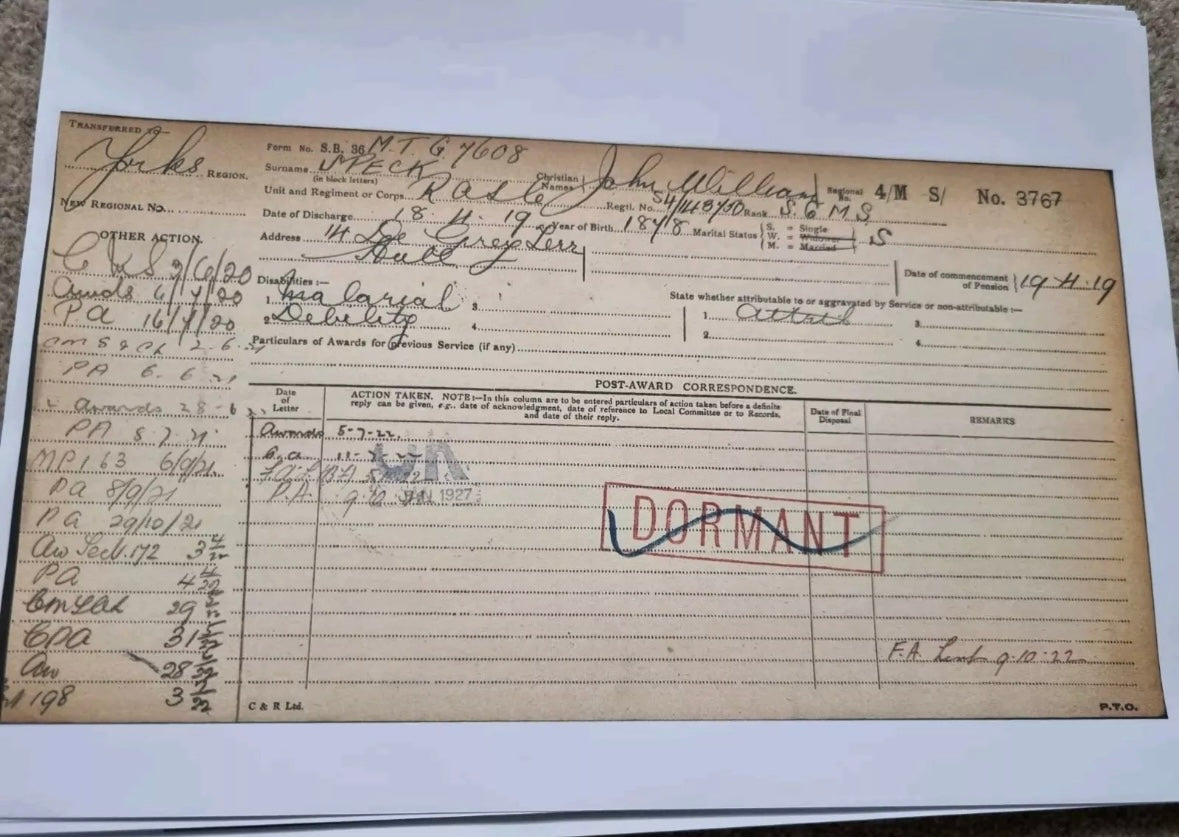 TRANSFERRED TO—
Yorks REGION.
NEW REGIONAL NO.
OTHER ACTION.
2/6/20
Awds 6/7/20
PA 16/7/20
2.6.21
PA 6.6.21
Awards 28-6
PA 8.7.21
MP 163 6/9/21
Pa 8/9/21
PA 29/10/21
Aw Sect. 172 3
PA 4
29
31
Aw 28
198 3
Form No. S.B. 36 M.T.G 7608
Surname PECK Christian Names John William Regional No. 4/M S/ No. 3767
(in block letters)
Unit and Regiment or Corps R.A.S.C Regtl. No. Rank S.Q.M.S.
Date of Discharge 18.4.19 Year of Birth 1878 Marital Status S. = Single W. = Widower M. = Married S
Address 14 De Grey Terr
Hull
Date of commencement of Pension 19.4.19
Disabilities :—
1. Malarial 3.
2. Debility 4.
State whether attributable to or aggravated by Service or non-attributable :—
1. Attrib 3.
2. 4.
Particulars of Awards for previous Service (if any)
POST-AWARD CORRESPONDENCE.
Date of Letter
ACTION TAKEN. NOTE:—In this column are to be entered particulars of action taken before a definite reply can be given, e.g., date of acknowledgment, date of reference to Local Committee or to Records, and date of their reply.
Date of Final Disposal
REMARKS
Awards 5-7-22.
PA
JAN 1927
DORMANT
F.A. 9.10.22
C & R Ltd.
P.T.O.